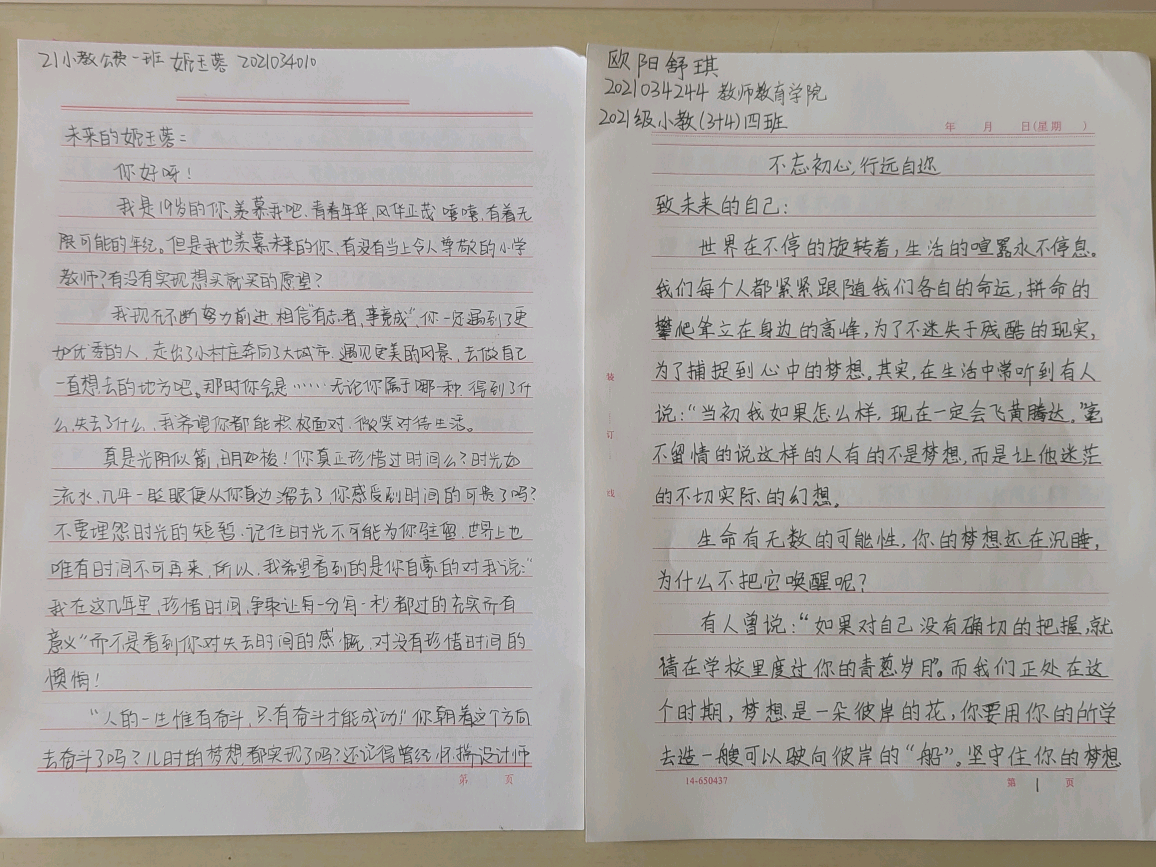 21小教公费一班 姬玉蓉 2021034010
未来的姬玉蓉：
你好呀！
我是19岁的你，羡慕我吧，青春年华，风华正茂，嘻嘻，有着无
限可能的年纪。但是我也羡慕未来的你，有没有当上令人尊敬的小学
教师？有没有实现想买就买的愿望？
我现在不断努力前进，相信“有志者，事竟成”，你一定遇到了更
加优秀的人，走出了小村庄奔向了大城市，遇见更美的风景，去做自己
一直想去的地方吧。那时你会是……无论你属于哪一种，得到了什
么，失去了什么，我希望你都能积极面对，微笑对待生活。
真是光阴似箭，日月如梭！你真正珍惜过时间么？时光如
流水，几年一眨眼便从你身边溜去了，你感受到时间的可贵了吗？
不要埋怨时光的短暂，记住时光不可能为你驻留，世界上也
唯有时间不可再来，所以，我希望看到的是你自豪的对我说：“
我在这几年里，珍惜时间，争取让每一分每一秒都过的充实而有
意义”而不是看到你对失去时间的感慨，对没有珍惜时间的
懊悔！
“人的一生惟有奋斗，只有奋斗才能成功”你朝着这个方向
去奋斗了吗？儿时的梦想都实现了吗？还记得曾经怀揣设计师
第 页
欧阳舒琪
2021034244 教师教育学院
2021级小教(3+4)四班
年 月 日(星期 )
不忘初心，行远自迩
致未来的自己：
世界在不停的旋转着，生活的喧嚣永不停息。
我们每个人都紧紧跟随我们各自的命运，拼命的
攀爬耸立在身边的高峰，为了不迷失于残酷的现实，
为了捕捉到心中的梦想。其实，在生活中常听到有人
说：“当初我如果怎么样，现在一定会飞黄腾达。”毫
不留情的说这样的人有的不是梦想，而是让他迷茫
的不切实际的幻想。
生命有无数的可能性，你的梦想还在沉睡，
为什么不把它唤醒呢？
有人曾说：“如果对自己没有确切的把握，就
请在学校里度过你的青葱岁月”。而我们正处在这
个时期，梦想是一朵彼岸的花，你要用你的所学
去造一艘可以驶向彼岸的“船”。坚守住你的梦想
14-650437 第 1 页
装
订
线